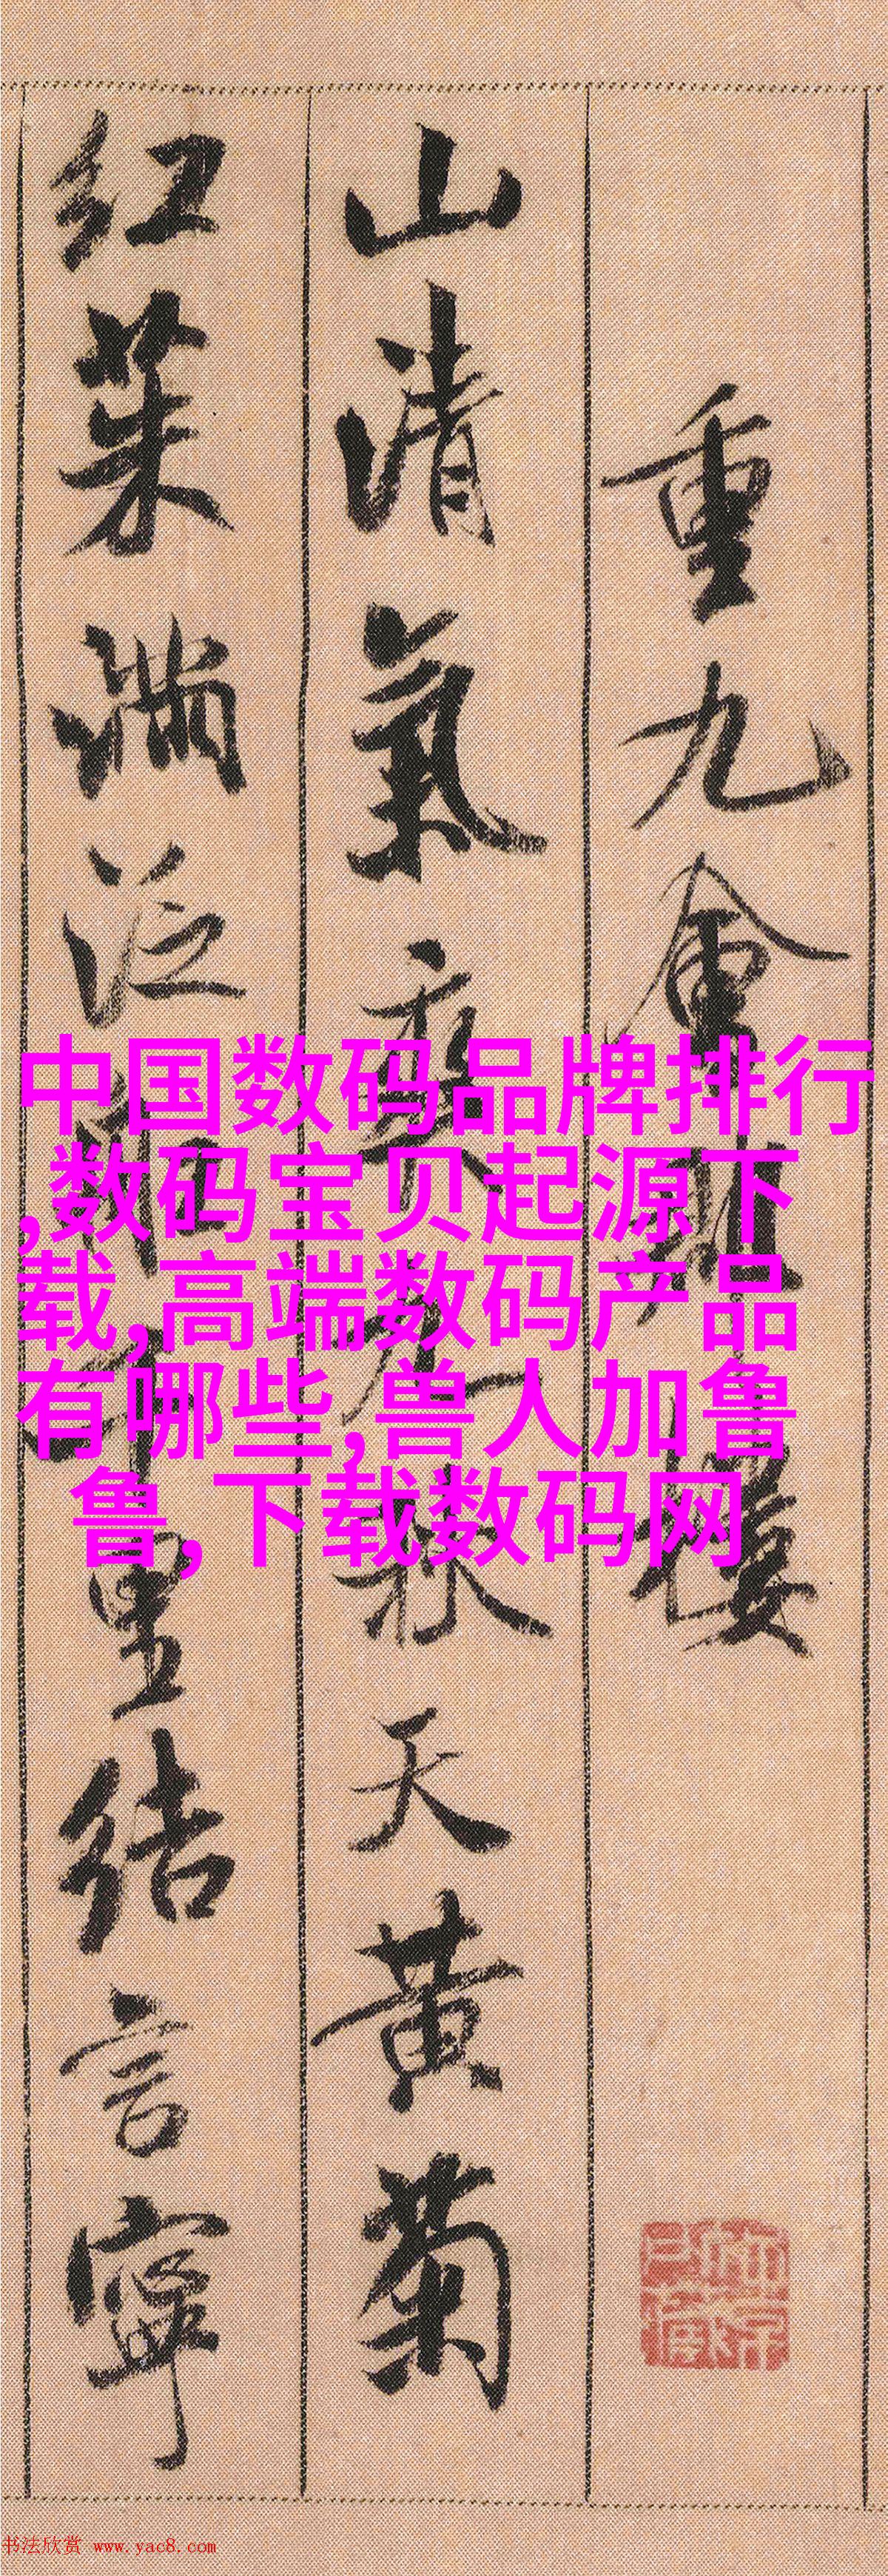 重九會郡樓
山清氣爽九秋天黄菊
紅茱滿泛船千里結言寧
中国数码品牌排行
,数码宝贝起源下
载,高端数码产品
有哪些,兽人加鲁
鲁,下载数码网
书法欣赏 www.yac8.com